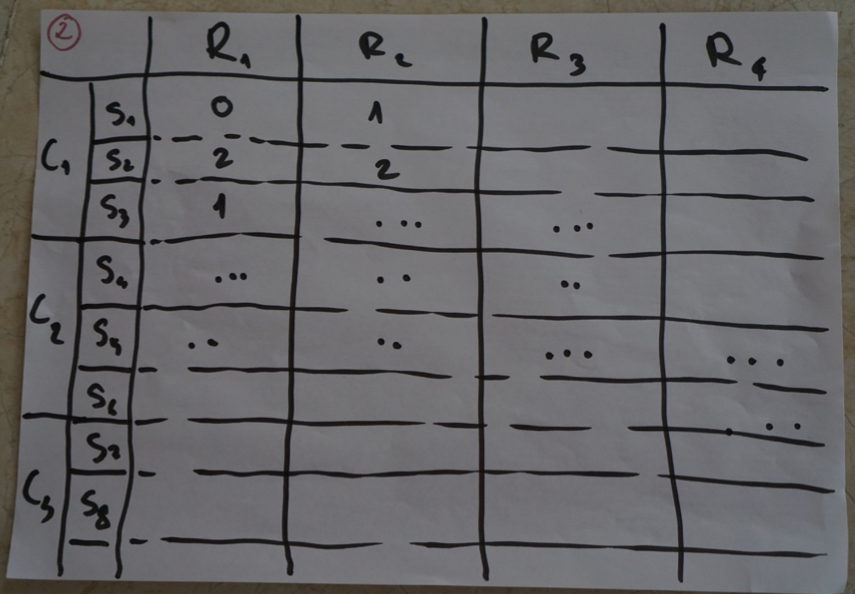 2 R1 R2 R3 R4
C1 S1 0 1
S2 2 2
S3 1 ... ...
C2 S4 ... .. ..
S5 .. .. ... ...
S6 ...
C3 S7
S8